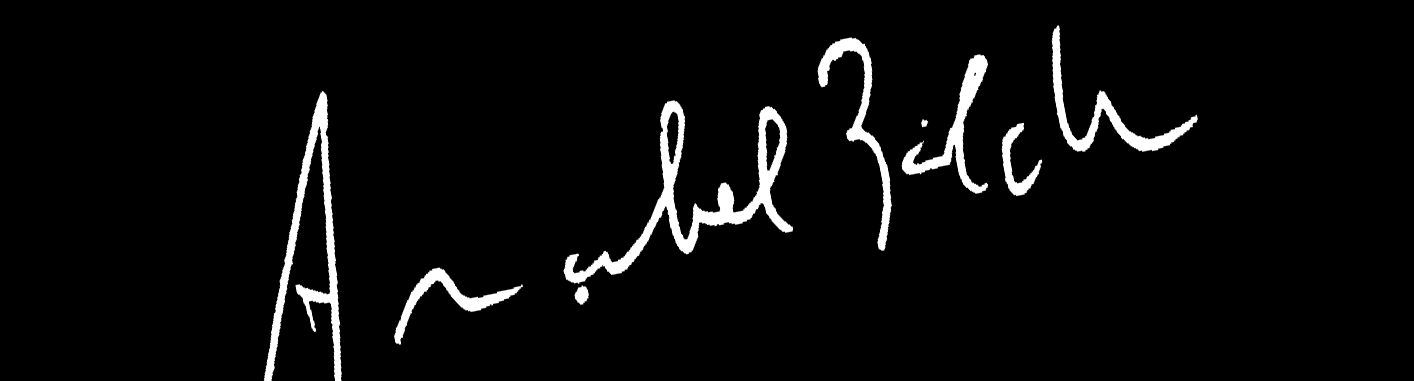 Anabel Zilch